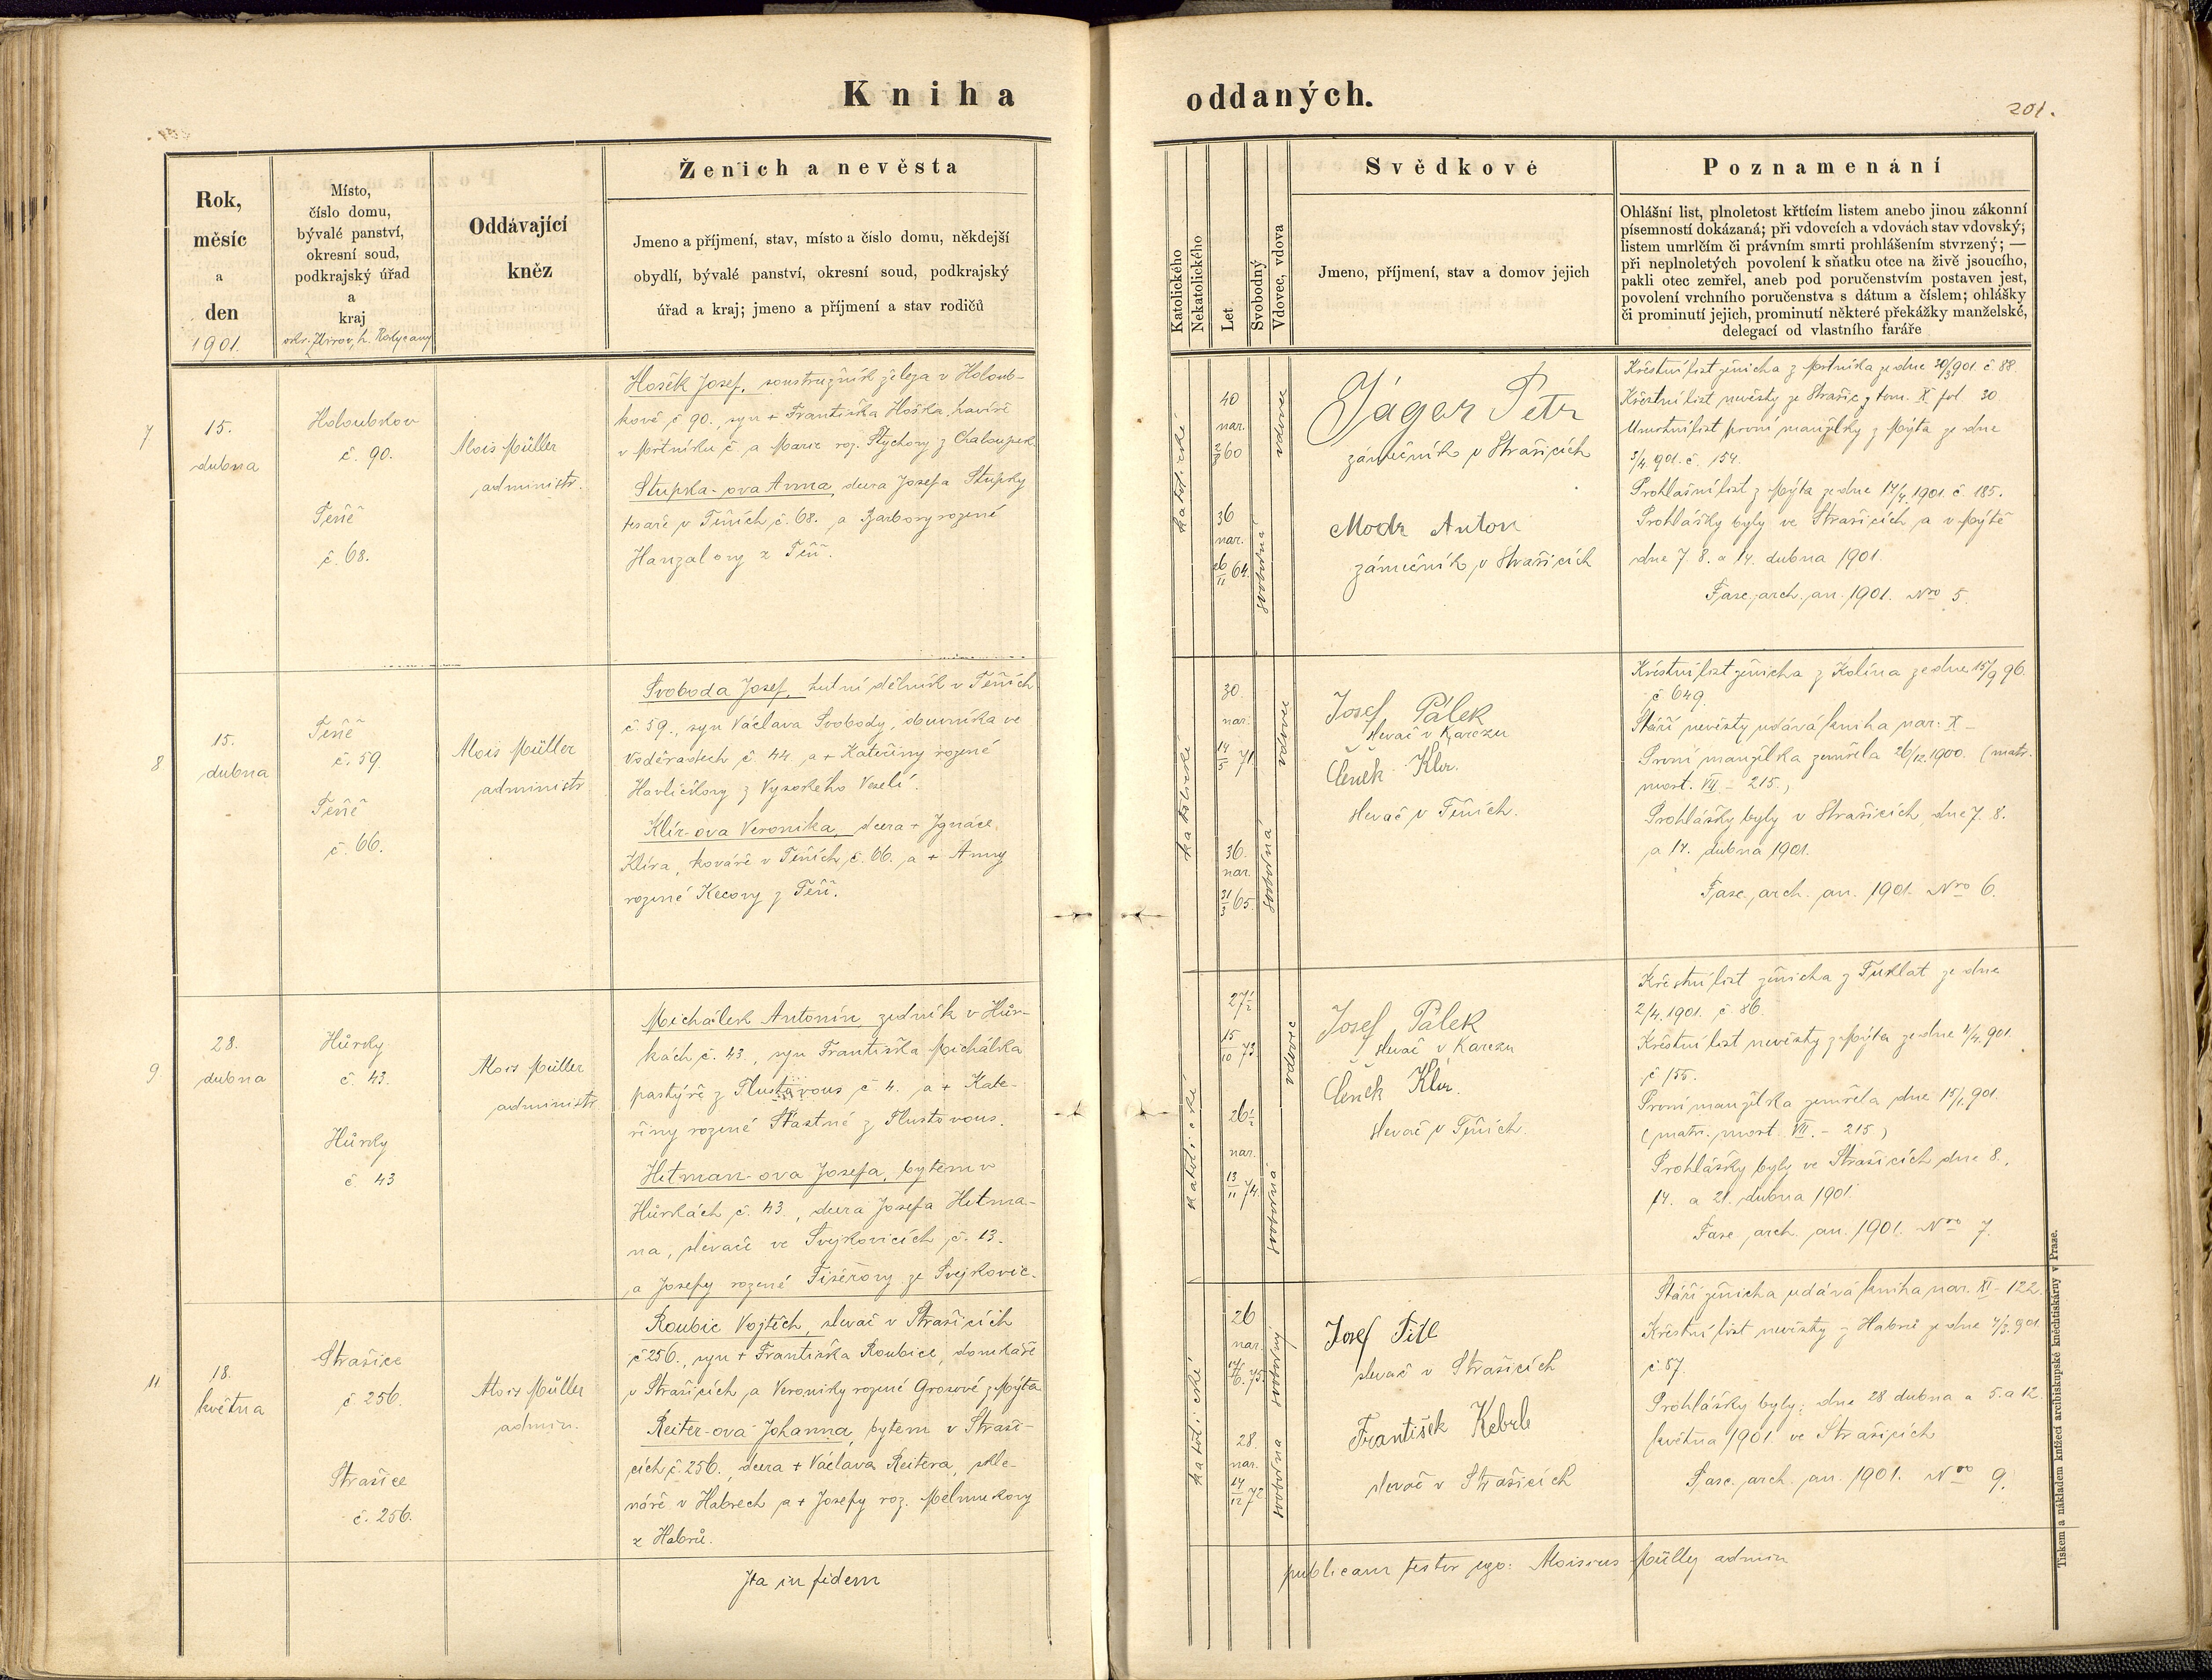 Kniha
oddaných.
201.
Rok,
měsíc
a
den
1901.
Místo,
číslo domu,
bývalé panství,
okresní soud,
podkrajský úřad
a
kraj
okr. Zbirov, h. Rokycany
Oddávající
kněz
Ženich a nevěsta
Jmeno a příjmení, stav, místo a číslo domu, někdejší
obydlí, bývalé panství, okresní soud, podkrajský
úřad a kraj; jmeno a příjmení a stav rodičů
Katolického
Nekatolického
Let
Svobodný
Vdovec, vdova
Svědkové
Jmeno, příjmení, stav a domov jejich
Poznamenání
Ohlášní list, plnoletost křtícím listem anebo jinou zákonní
písemností dokázaná; při vdovcích a vdovách stav vdovský;
listem umrlčím či právním smrti prohlášením stvrzený; —
při neplnoletých povolení k sňatku otce na živě jsoucího,
pakli otec zemřel, aneb pod poručenstvím postaven jest,
povolení vrchního poručenstva s dátum a číslem; ohlášky
či prominutí jejich, prominutí některé překážky manželské,
delegací od vlastního faráře
7
15.
dubna
Holoubkov
č. 90.
Těně
č. 68.
Alois Müller
administr.
Hošek Josef, soustružník železa v Holoub-
kově č 90., syn + Františka Hoška, havíře
v Mrtníku č a Marie roz. Stychovy z Chaloupek
Stupka-ova Anna, dcera Josefa Stupky
tesaře v Těních č. 68. a Barbory rozené
Hanzalovy z Těň.
katolické
40
nar.
2/3 60
vdovec
36
nar.
26/11 64.
svobodná
Jágar Petr
zámečník v Strašicích
Modr Anton
zámečník v Strašicích
Křestní list ženicha z Mrtníka ze dne 30/3 901 č. 88.
Křestní list nevěsty ze Strašic z tom. X fol 30
Úmrtní list první manželky z Mýta ze dne
3/4 901. č. 154.
Prohlášní list z Mýta ze dne 14/4 1901. č. 185.
Prohlášky byly ve Strašicích a v Mýtě
dne 7. 8. a 14. dubna 1901.
Fasc. arch. an. 1901. Nro 5
8
15.
dubna
Těně
č. 59.
Těně
č. 66.
Alois Müller
administr
Svoboda Josef, hutní dělník v Těních
č. 59., syn Václava Svobody, obuvníka ve
Voděradech č. 44. a + Kateřiny rozené
Havlíčkovy z Vysokého Veselí.
Klír-ova Veronika, dcera + Ignáce
Klíra, kováře v Těních č. 66. a + Anny
rozené Kecovy z Těň.
katolické
30.
nar.
14/5 71
vdovec
36.
nar.
31/3 65.
svobodná
Josef Pálek
slevač v Karezu
Čeněk Klír.
slevač v Těních.
Křestní list ženicha z Kolína ze dne 15/9 96.
č 649.
Stáří nevěsty udává kniha nar: X –
První manželka zemřela 26/12 1900. (matr.
mort. VII – 215.)
Prohlášky byly v Strašicích dne 7. 8.
a 14. dubna 1901.
Fasc. arch. an. 1901. Nro 6.
9
28.
dubna
Hůrky
č. 43.
Hůrky
č. 43
Alois Müller
administr
Michálek Antonín zedník v Hůr-
kách č. 43., syn Františka Michálka
pastýře z Tlustovous č. 4. a + Kate-
řiny rozené Šťastné z Tlustovous.
Hetman-ova Josefa, bytem v
Hůrkách č. 43., dcera Josefa Hetma-
na, slevače ve Svejkovicích č. 13.
a Josefy rozené Fišerovy ze Svejkovic.
katolické
27½
15/10 73.
vdovec
26½
nar.
13/11 74.
svobodná
Josef Pálek
slevač v Karezu
Čeněk Klír.
slevač v Těních.
Křestní list ženicha z Tuklat ze dne
2/4. 1901. č 86.
Křestní list nevěsty z Mýta ze dne 4/4 901.
č 155.
První manželka zemřela dne 15/1 901.
(matr. mort. VII. – 215)
Prohlášky byly ve Strašicích dne 8.,
14. a 21. dubna 1901.
Fasc arch. an. 1901. Nro 7.
11
18.
května
Strašice
č 256.
Strašice
č. 256.
Alois Müller
admin.
Roubic Vojtěch, slevač v Strašicích
č 256., syn + Františka Roubice, domkáře
v Strašicích a Veroniky rozené Grosové z Mýta
Reiter-ova Johanna, bytem v Straši-
cích č. 256., dcera + Václava Reitera, skle-
náře v Habrech a + Josefy roz. Mělnukovy
z Habrů.
katolické
26
nar.
svobodný
28.
nar.
14/12 72.
svobodna
Josef Titl
slevač v Strašicích
František Keberle
slevač v Strašicích
Stáří ženicha udává kniha nar. XI – 122.
Křestní list nevěsty z Habrů ze dne 4/3. 901
č. 87
Prohlášky byly: dne 28 dubna a 5. a 12.
května 1901. ve Strašicích
Fasc. arch. an. 1901. Nro 9.
Ita in fidem
publicam testor ego: Aloisius Müller admin
Tiskem a nákladem knížecí arcibiskupské kněhtiskárny v Praze.